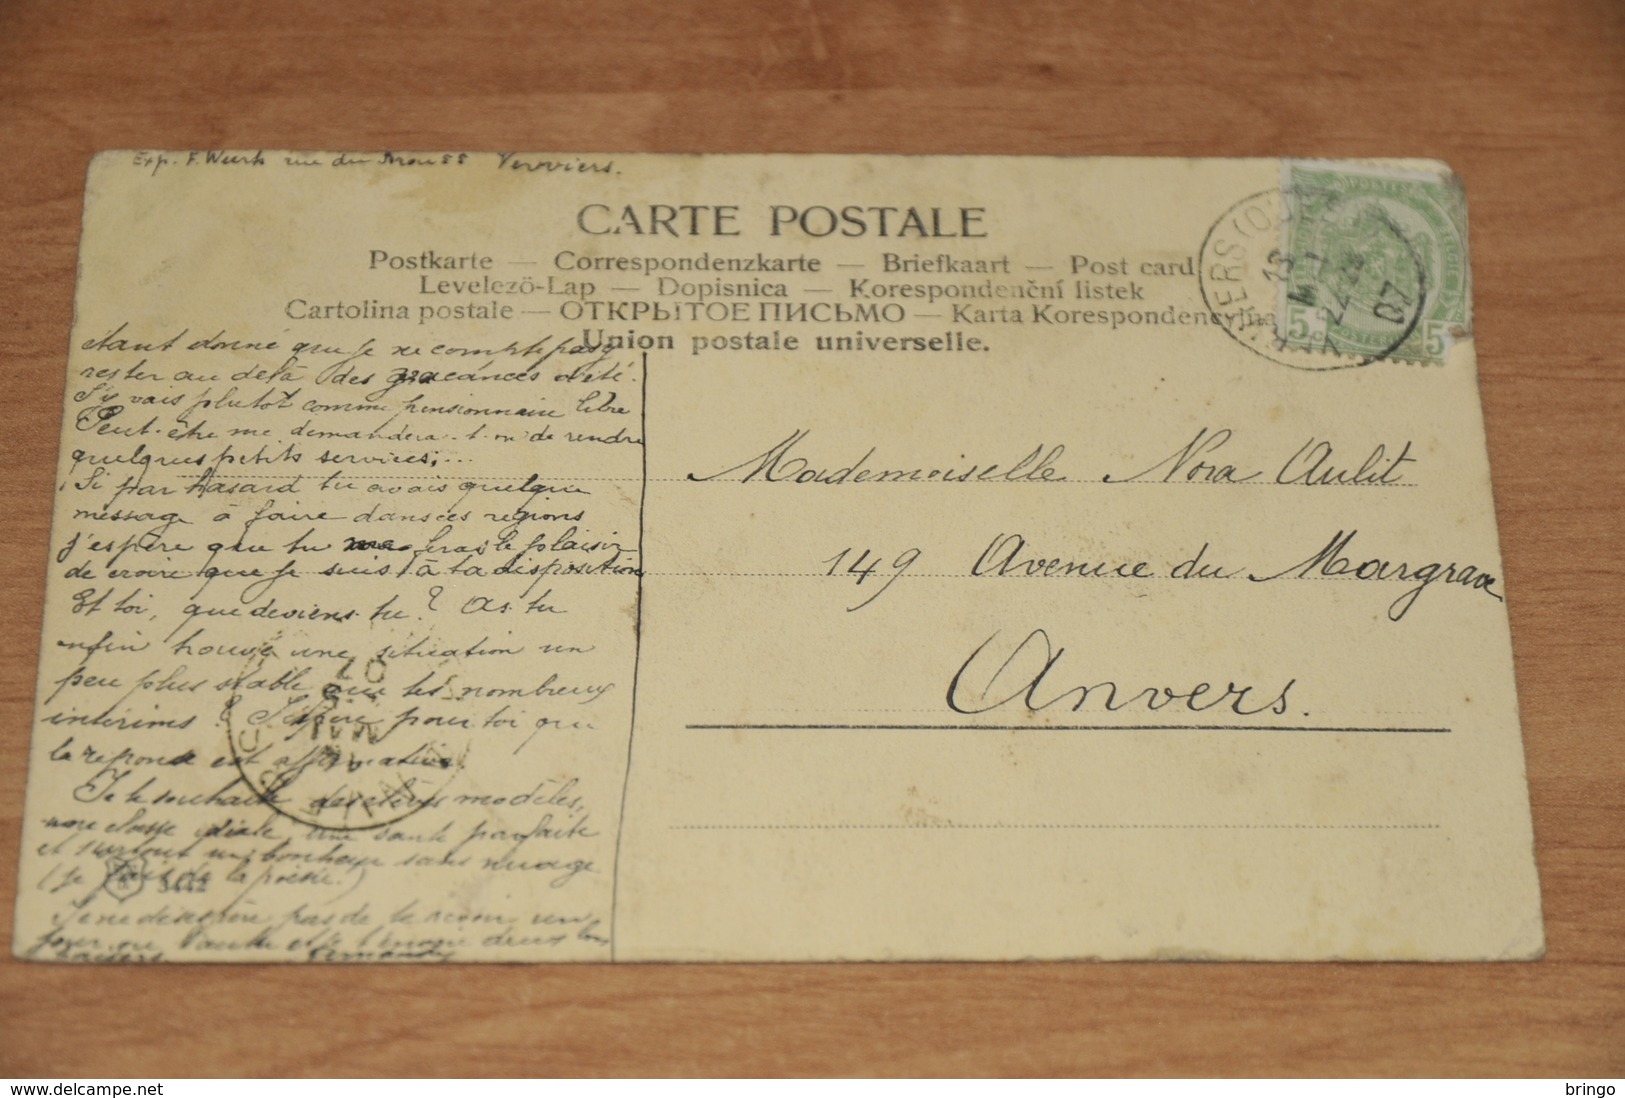 Exp. F. Wurth rue du 55 Verviers.
CARTE POSTALE
Postkarte — Correspondenzkarte — Briefkaart — Post card
Levelezö-Lap — Dopisnica — Korespondenční listek
Cartolina postale — ОТКРЫТОЕ ПИСЬМО — Karta Korespondencyjna
Union postale universelle.
étant donné que je ne compte pas y
rester au delà des vacances d'été.
J'y vais plutôt comme pensionnaire libre
Peut-être me demandera-t-on de rendre
quelques petits services;...
Si par hasard tu avais quelque
message à faire dans ces régions
j'espère que tu feras le plaisir
de croire que je suis à ta disposition
Et toi, que deviens-tu? As-tu
enfin trouvé une situation un
peu plus stable que tes nombreux
intérims? J'espère pour toi que
la réponse est affirmative.
Je te souhaite des élèves modèles,
une classe idéale, une santé parfaite
et surtout un bonheur sans nuage
(je fais de la poésie.)
Je ne désespère pas de te revoir un
jour ou l'autre et je t'envoie deux bons
baisers Fernande
Mademoiselle Nora Aulit
149 Avenue du Margrave
Anvers.
VERVIERS (OUEST)
13
22-23
07
5 5
bringo